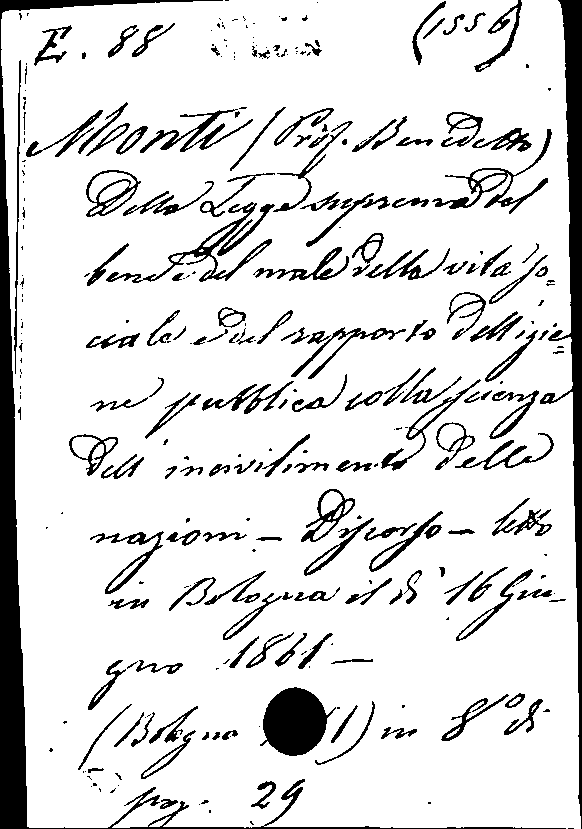 E. 88 (1556)
Monti (Prof. Benedetto)
Della Legge suprema del
bene e del male della vita so=
ciale e del rapporto dell'igie=
ne pubblica colla scienza
dell'incivilimento delle
nazioni - Discorso - letto
in Bologna il dì 16 Giu-
gno 1861 -
(Bologna 1) in 8° di
pag. 29